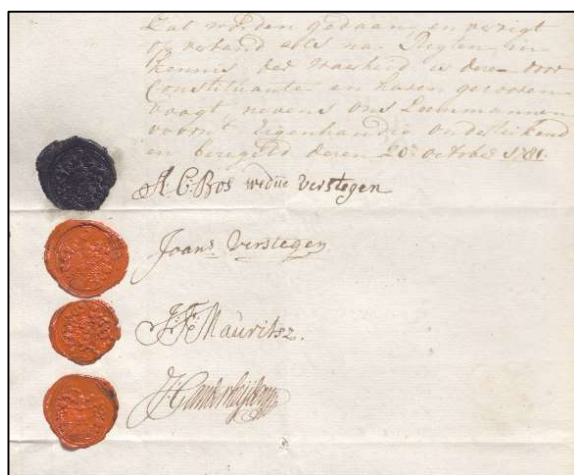 Zal worden gedaan en verigt
op verband als na Regten in
kennis der waarheid is deze door
Constituante en haren gecoosen
voogt nevens ons Leenmannen
voornt. Eigenhandig onderteikend
en bezegeld dezen 20e october 1781.
A: C: Bos weduë Verstegen
Joans Verstegen
J: F: Mauritsz.